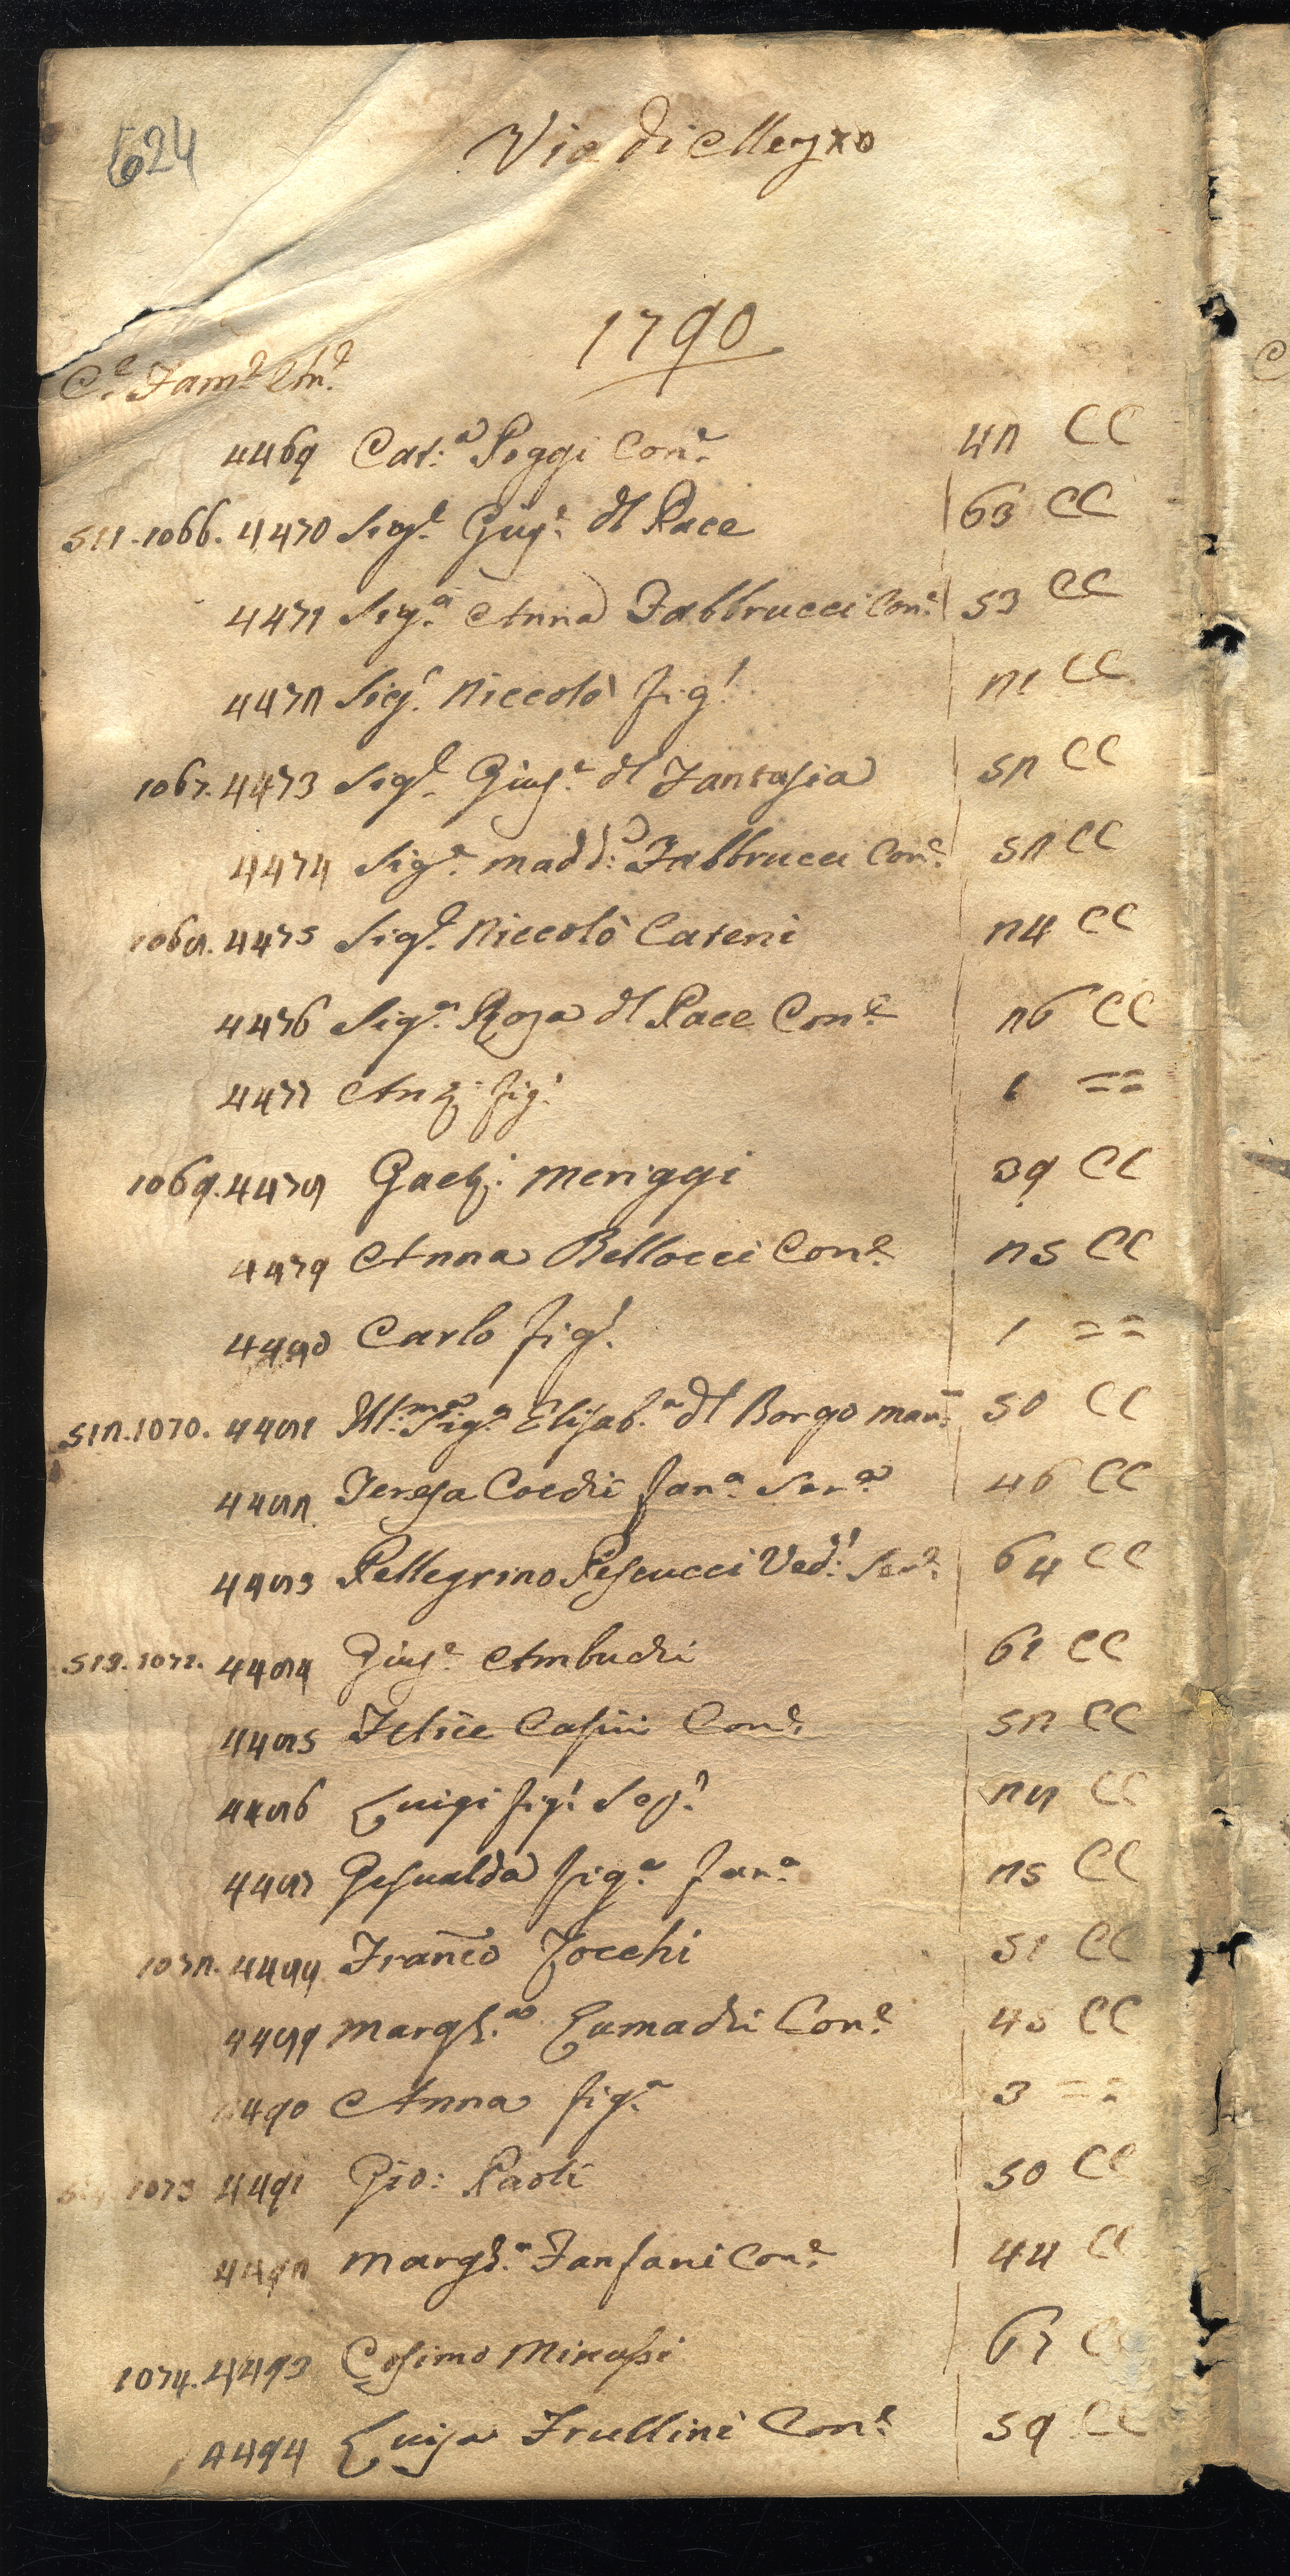 624
Via di Mezzo
1790
C.e Fam.e Am.e
4469 Cat:a Poggi Con.e 42 CC
511. 1066. 4470 Sig.r Giuse.e dl Pace 63 CC
4471 Sig.a Anna Fabbrucci Con.e 53 CC
4472 Sig.r Niccolò fig.o 21 CC
1067. 4473 Sig.r Gius.e dl Fantasia 52 CC
4474 Sig.a Madd:a Fabbrucci Con.e 52 CC
1068. 4475 Sig.r Niccolò Cateni 24 CC
4476 Sig.a Rosa dl Pace Con.e 26 CC
4477 Ant.o fig.o 1 ==
1069. 4478 Gaet.o Meriggi 39 CC
4479 Anna Bellocci Con.e 25 CC
4480 Carlo fig.o 1 ==
512. 1070. 4481 Ill.ma Sig.a Elisab.a dl Borgo 50 CC
4482 Teresa Fan.a Ser.a 46 CC
4483 Pellegrino Pescucci Ved.o Ser.e 64 CC
513. 1071. 4484 Gius.e Ambuchi 61 CC
4485 Felice Casini Con.e 52 CC
4486 Luigi fig.o 28 CC
4487 Gesualda fig.a Fan.a 25 CC
1072. 4488 Franco Zocchi 51 CC
4489 Margh.a Lumachi Con.e 45 CC
4490 Anna fig.a 3 ==
514. 1073 4491 Gio: Paoli 50 CC
4492 Margh.a Fanfani Con.e 44 CC
1074. 4493 Cosimo Minassi 67 CC
4494 Luisa Frullini Con.e 59 CC